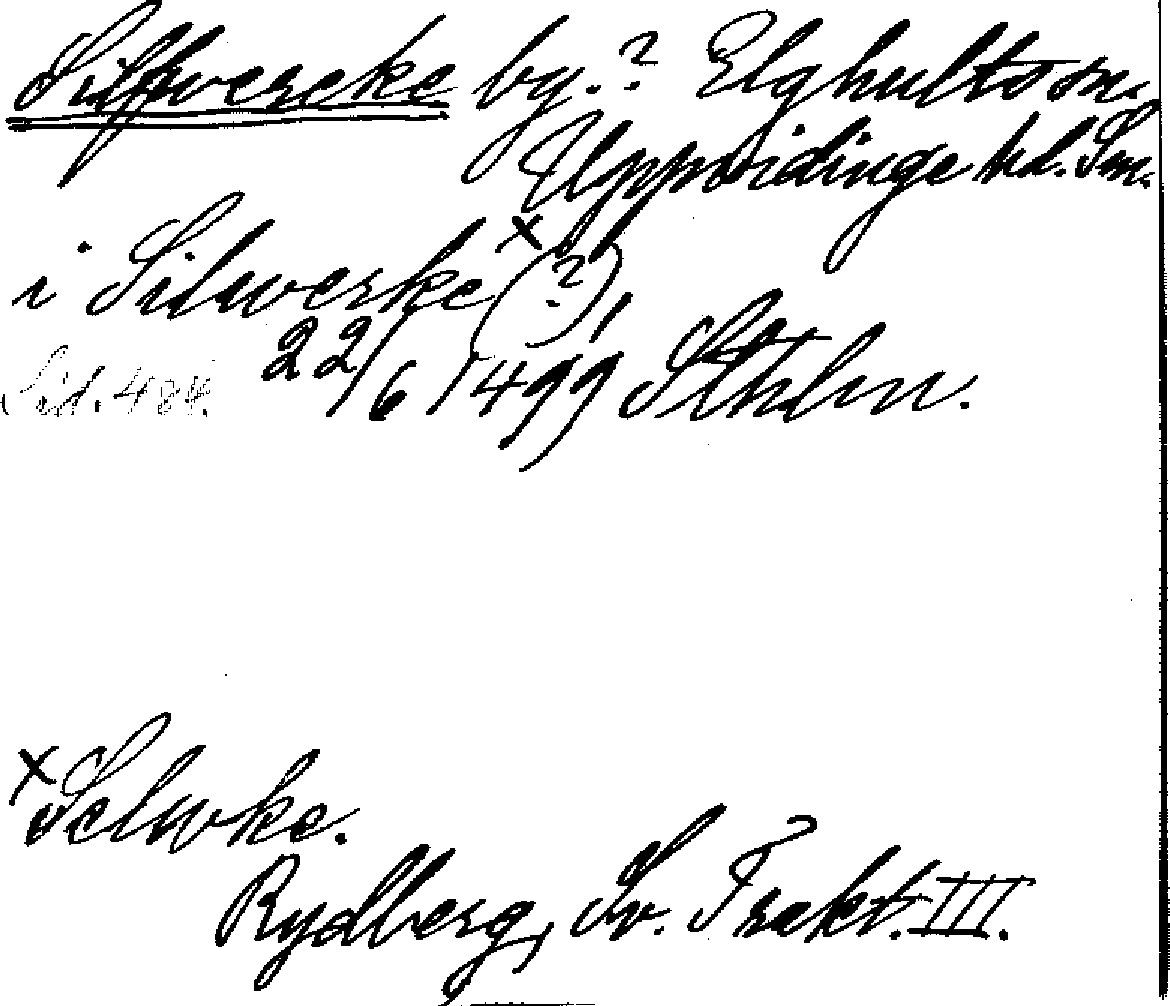 Silfvereke by.? Elghults sn.
Uppvidinge hd. Sm.
i Silwerke x(?),
Sid. 484. 22/6 1499 Sthlm.
x Selwke.
Rydberg, Sv. Trakt. III.